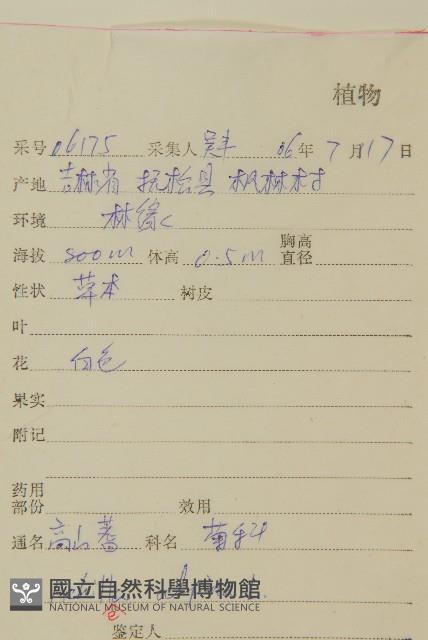 植物
采号 06175 采集人 吴丰 06年7月17日
产地 吉林省 抚松县 枫林村
环境 林缘
海拔 800m 体高 0.5m 胸高直径
性状 草本 树皮
叶
花 白色
果实
附记
药用部份 效用
通名 高山蓍 科名 菊科
國立自然科學博物館
NATIONAL MUSEUM OF NATURAL SCIENCE
鉴定人